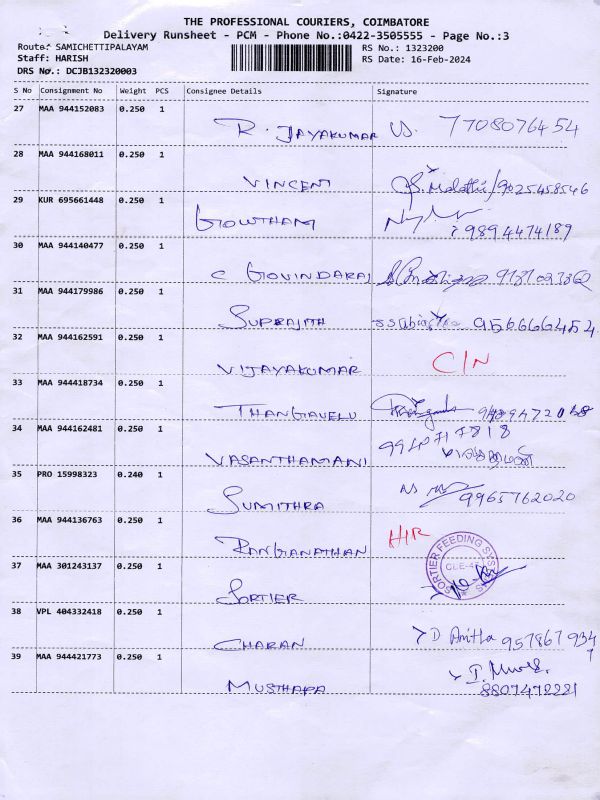 THE PROFESSIONAL COURIERS, COIMBATORE
Delivery Runsheet - PCM - Phone No.:0422-3505555 - Page No.:3
Route: SAMICHETTIPALAYAM
RS No.: 1323200
Staff: HARISH
RS Date: 16-Feb-2024
DRS No.: DCJB132320003
S No Consignment No Weight PCS Consignee Details Signature
27 MAA 944152083 0.250 1
R. JAYAKUMAR 7708076454
28 MAA 944168011 0.250 1
VINCENT S. Malathi/9025458546
29 KUR 695661448 0.250 1
GOWTHAM 9894474189
30 MAA 944140477 0.250 1
C GOVINDARAJ
31 MAA 944179986 0.250 1
SUPRAJITH 9566666454
32 MAA 944162591 0.250 1
VIJAYAKUMAR C/N
33 MAA 944418734 0.250 1
THANGAVELU
34 MAA 944162481 0.250 1
VASANTHAMANI
35 PRO 15998323 0.240 1
SUMITHRA 9965762020
36 MAA 944136763 0.250 1
RANGANATHAN H/R
37 MAA 301243137 0.250 1
SORTIER FEEDING SYSTEMS
SORTIER
38 VPL 404332418 0.250 1
CHARAN D Anitha 9578679347
39 MAA 944421773 0.250 1
MUSTHAFA 8807472221